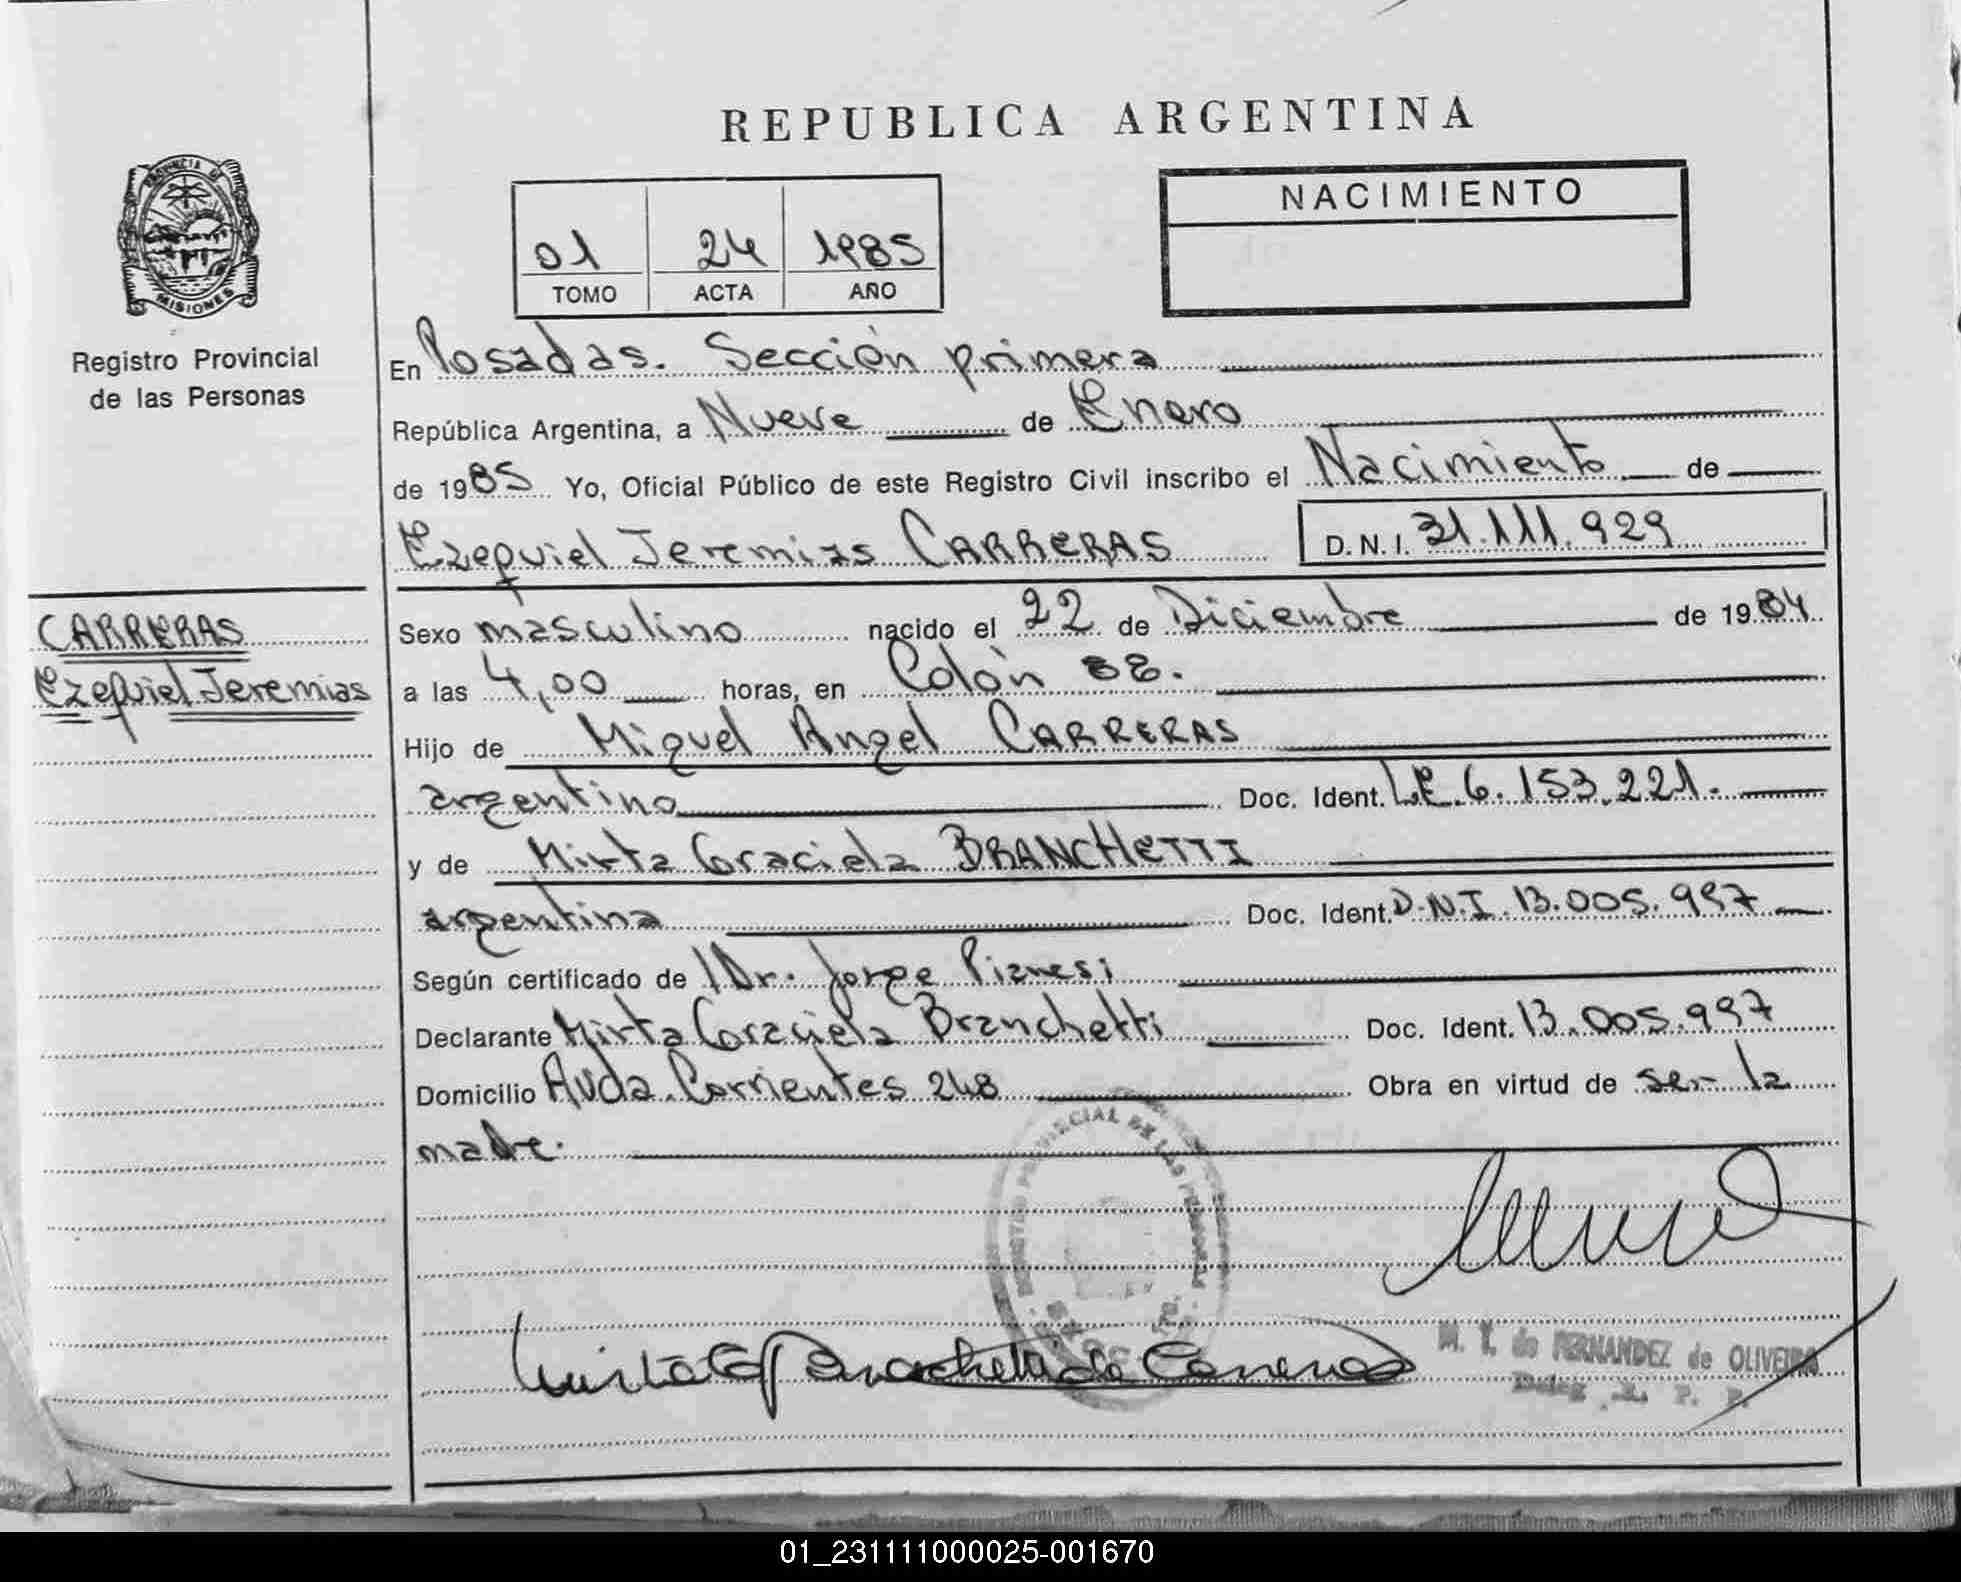 REPUBLICA ARGENTINA
PROVINCIA DE
MISIONES
Registro Provincial
de las Personas
NACIMIENTO
01 24 1985
TOMO ACTA AÑO
En Posadas. Sección primera
República Argentina, a Nueve de Enero
de 1985 Yo, Oficial Público de este Registro Civil inscribo el Nacimiento de
Ezequiel Jeremias CARRERAS D.N.I. 31.111.929
CARRERAS
Ezequiel Jeremias
Sexo masculino nacido el 22 de Diciembre de 1984
a las 4,00 horas, en Colón 88.
Hijo de Miguel Angel CARRERAS
argentino Doc. Ident. L.E. 6.153.221.
y de Mirta Graciela BRANCHETTI
argentina Doc. Ident. D.N.I. 13.005.997
Según certificado de Dr. Jorge
Declarante Mirta Graciela Branchetti Doc. Ident. 13.005.997
Domicilio Avda. Corrientes 248 Obra en virtud de ser la
madre.
PROVINCIAL DE LAS PERSONAS
Mirta G Branchetti de Carreras
M. T. de FERNANDEZ de OLIVEIRA
Deleg. R. P. P.
01_231111000025-001670